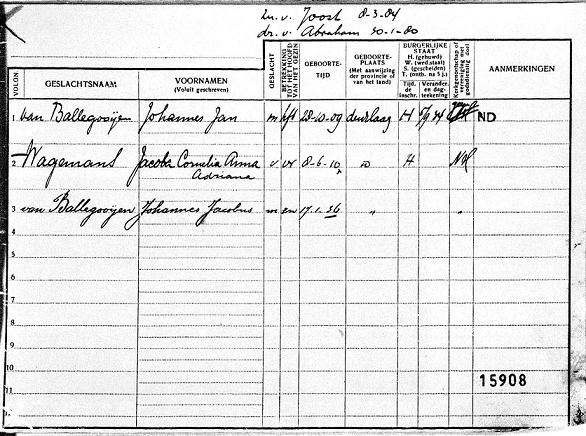 zn. v. Joost 8-3-84
dr. v. Abraham 30-1-80
VOLGN.
GESLACHTSNAAM
VOORNAMEN
(Voluit geschreven)
GESLACHT
BETREKKING TOT HET HOOFD VAN HET GEZIN
GEBOORTE-
TIJD
GEBOORTE-
PLAATS
(Met aanwijzing
der provincie of
van het land)
BURGERLIJKE
STAAT
H. (gehuwd)
W. (wed.staat)
S. (gescheiden)
T. (ontb. na 5 j.)
Tijd.
de
inschr.
Verander.
en dag-
teekening
Kerkgenootschap of
AANMERKINGEN
1 van Ballegooijen Johannes Jan m hft 28-10-09 H ND
2 Wagemans Jacoba Cornelia Anna v vr 8-6-10 H NH
Adriana
3 van Ballegooijen Johannes Jacobus m zn 17-1-36 " "
4
5
6
7
8
9
10
15908
11